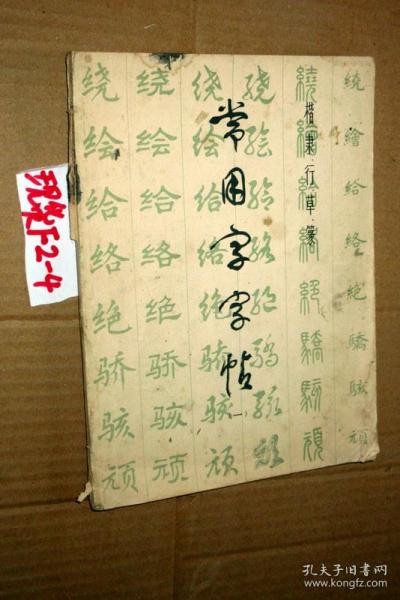 常用字字帖
一
楷·隶·行·草·篆
绕绘给络绝骄骇顽
绕绘给络绝骄骇顽
绕绘给络绝骄骇顽
绕绘给络绝骄骇顽
繞繪給絡絕驕駭頑
繞繪給絡絶驕駭頑
孔夫子旧书网
www.kongfz.com